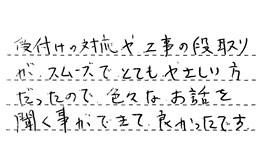 受付けの対応や工事の段取り
が、スムーズでとてもやさしい方
だったので色々なお話を
聞く事ができて良かったです。